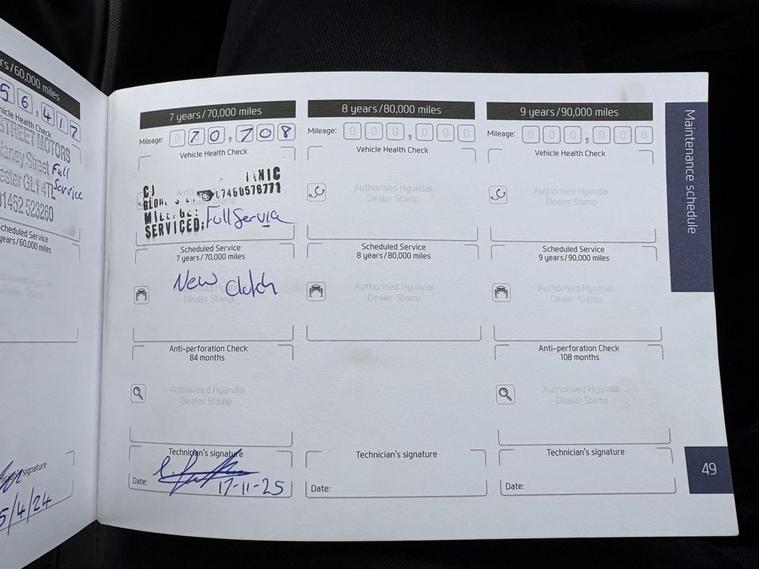 rs/60,000 miles
5 6,4 1 2
hicle Health Check
STREET MOTORS
Full
Service
ester GL1 4TL
01452 523260
cheduled Service
years/60,000 miles
signature
5/4/24
7 years/70,000 miles
Mileage: 0 7 0,7 0 8
Vehicle Health Check
MILEAGE:
SERVICED: Full Service
Scheduled Service
7 years/70,000 miles
New Clutch
Dealer Stamp
Anti-perforation Check
84 months
Authorised Hyundai
Dealer Stamp
Technician's signature
Date: 17-11-25
8 years/80,000 miles
Mileage: 0 0 0,0 0 0
Vehicle Health Check
Authorised Hyundai
Dealer Stamp
Scheduled Service
8 years/80,000 miles
Authorised Hyundai
Dealer Stamp
Technician's signature
Date:
9 years/90,000 miles
Mileage: 0 0 0,0 0 0
Vehicle Health Check
Authorised Hyundai
Dealer Stamp
Scheduled Service
9 years/90,000 miles
Authorised Hyundai
Dealer Stamp
Anti-perforation Check
108 months
Authorised Hyundai
Dealer Stamp
Technician's signature
Date:
Maintenance schedule
49